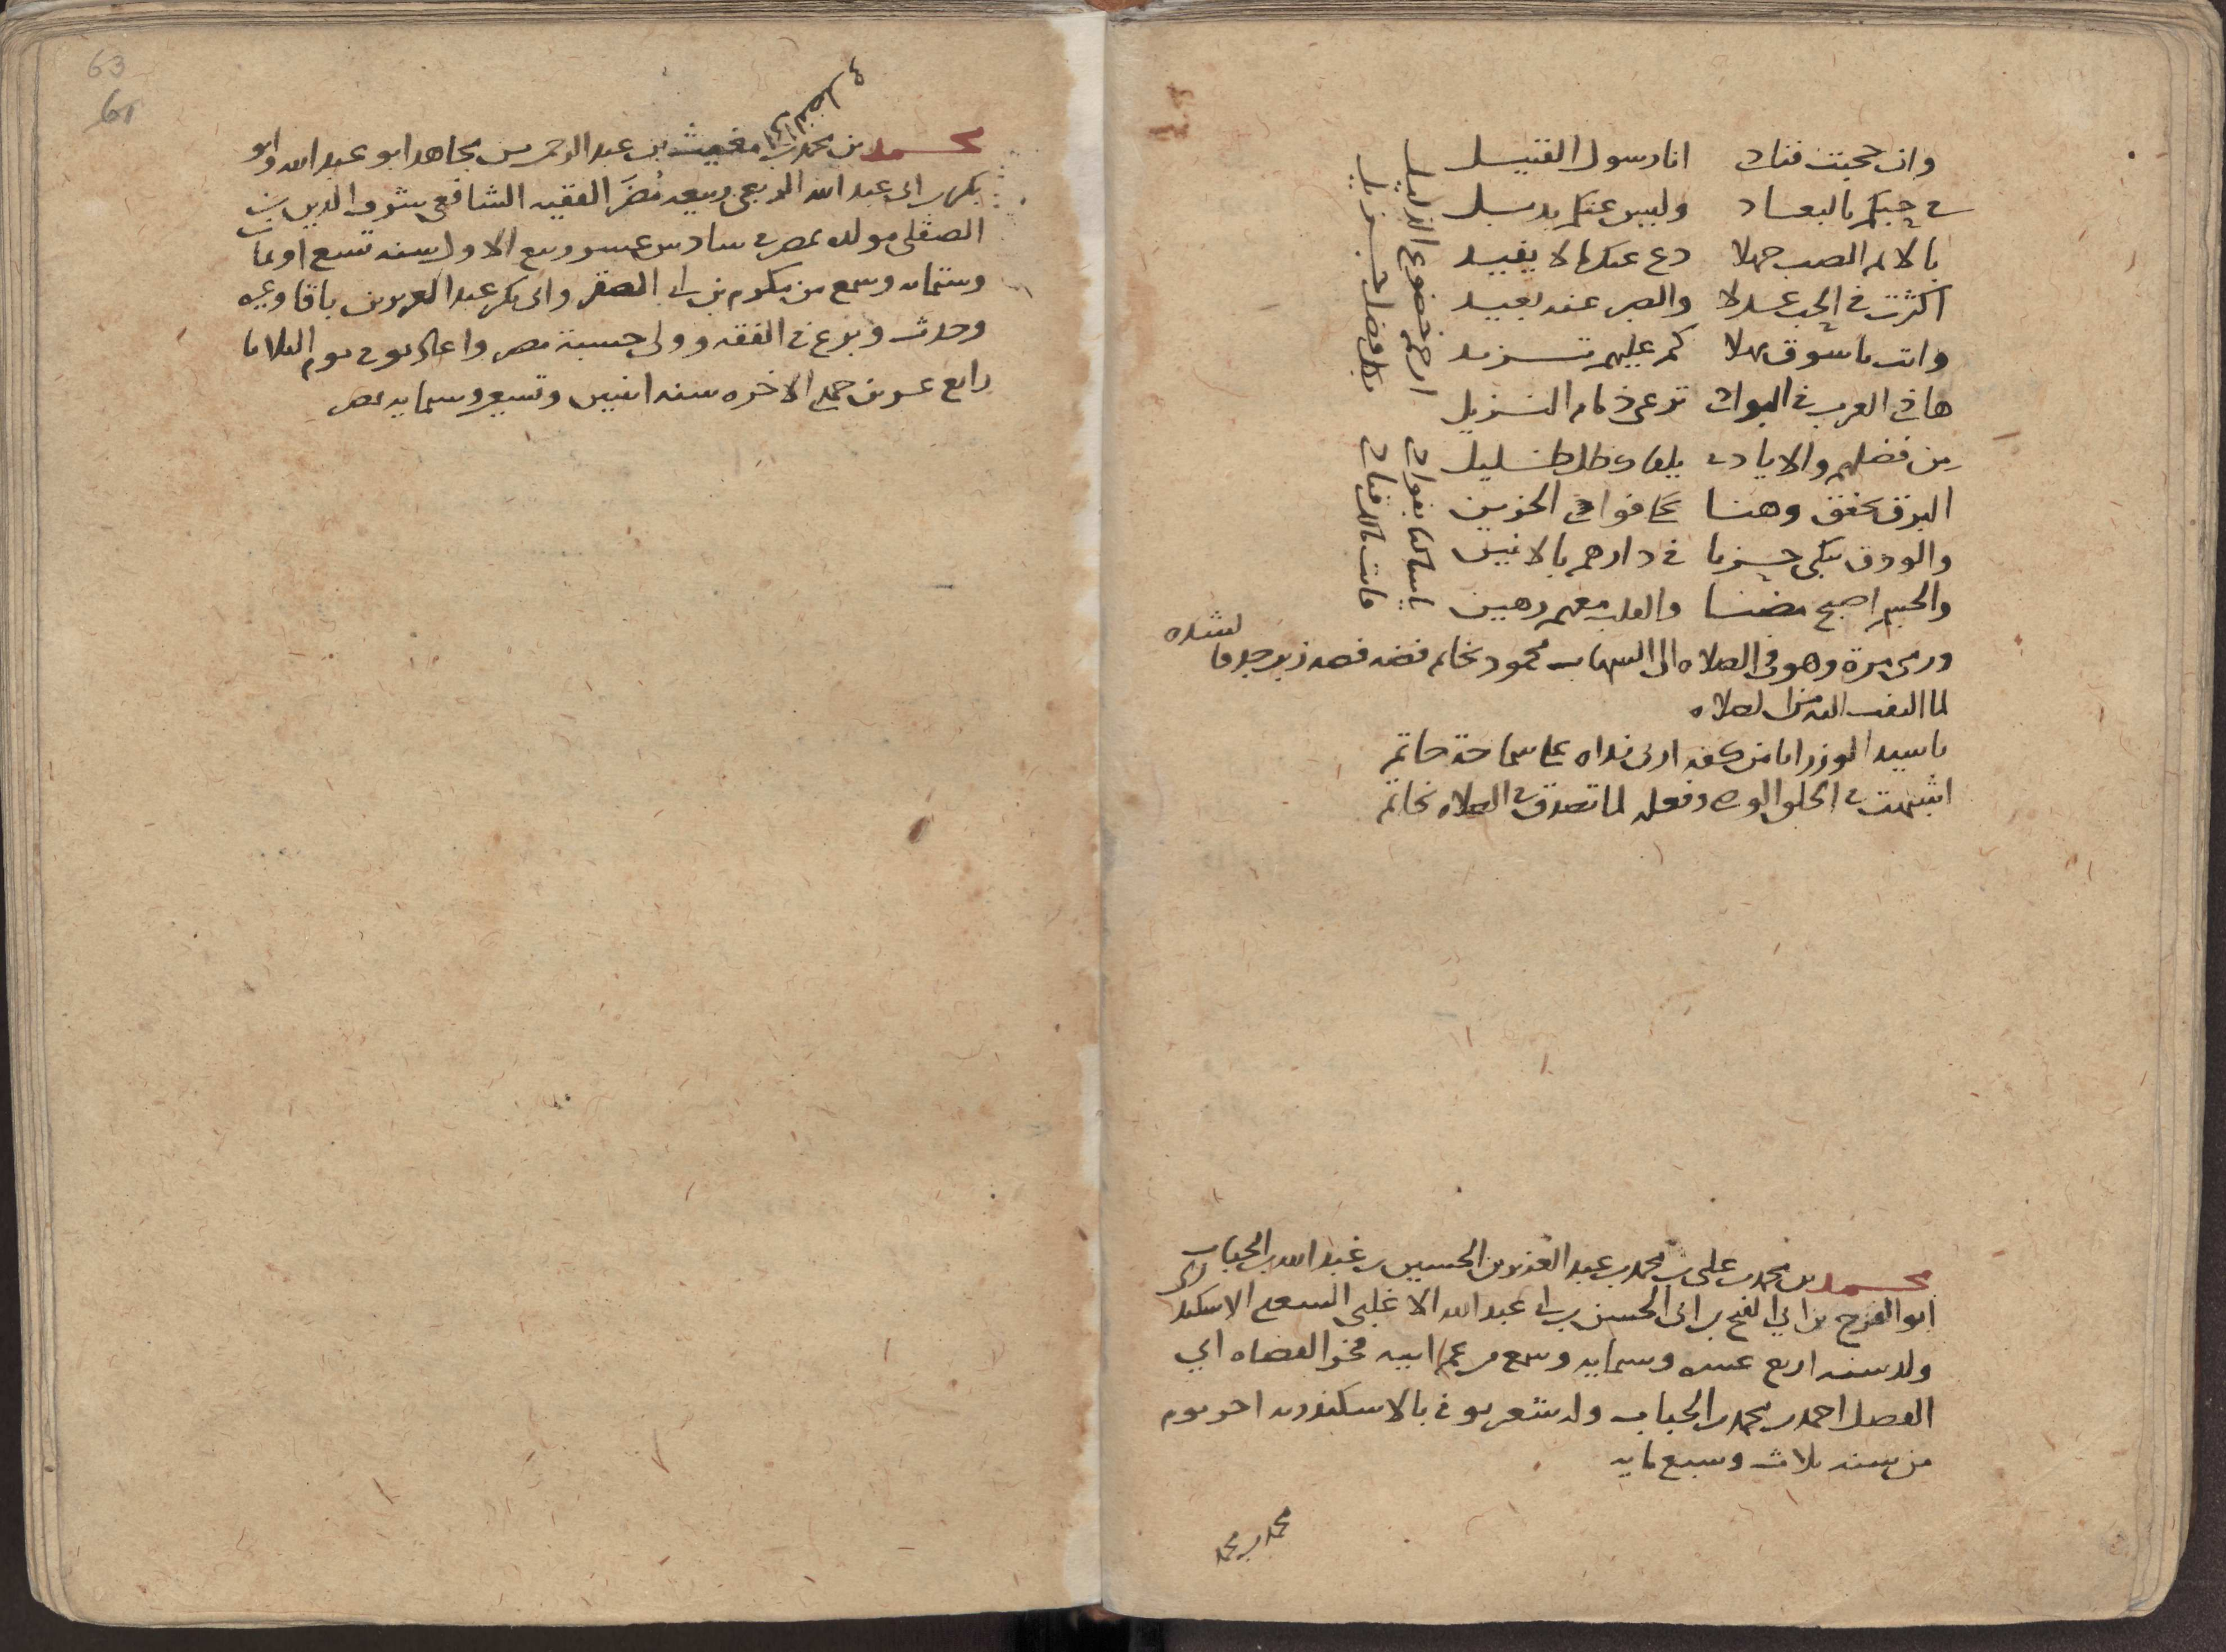 وان حجبت فناد انا رسول القتيل
في حبكم بالبعاد وليس عنكم بديل
يا لايم الصب جهلا دع عنك ما لا يفيد
اكثرت في الحب عدلا والصبر عنه بعيد
وانت يا شوق مهلا كم عليهم تزيد
ها في العرب في البوادي ترعى ذمام النزيل
من فضلهم والايادي يلقاه ظل ظليل
البرق يخفق وهنا على فؤادي الحزين
والورق تبكي حزنا في دارهم بالانين
والجسم اصبح مضنا والقلب معهم رهين
ارحم خضوع الذليل
بفضل جزيل
ورمى مرة وهو في الصلاه الى الشهاب محمود بخاتم فضه فصه زبرجد فانشده
لما التفت اليه من الصلاه
يا سيد الوزرا يا من كفه اربى نداه على سماحة حاتم
اشبهت في الخلق الوصي وفعله لما تصدق في الصلاه بخاتم
محمد بن محمد بن علي بن محمد بن عبد العزيز بن الحسين بن عبد الله بن الحباب
ابو الفرج بن ابي الفتح بن ابي الحسن بن ابي عبد الله الاغلبي السعدي الاسكندراني
ولد سنه اربع عشره وستمايه وسمع من عم ابيه فخر القضاه ابي
الفضل احمد بن محمد بن الحباب وله شعر توفي بالاسكندريه اخر يوم
من سنه ثلاث وسبع مايه
محمد بن محمد
63
61
محمد بن محمد بن مغيث بن عبد الرحمن بن مجاهد ابو عبد الله وابو
بكر بن ابي عبد الله الربعي ربيعه مضر الفقيه الشافعي شرف الدين بن
الصقلي مولده بمصر في سادس عشر ربيع الاول سنه تسع او ثمان
وستمايه وسمع من مكرم بن ابي الصقر وابي بكر عبد العزيز بن باقا وغيره
وحدث وبرع في الفقه وولي حسبة مصر واعمالها توفي يوم الثلاثا
رابع عشرين جمادى الاخره سنه اثنين وتسعين وستمايه بمصر